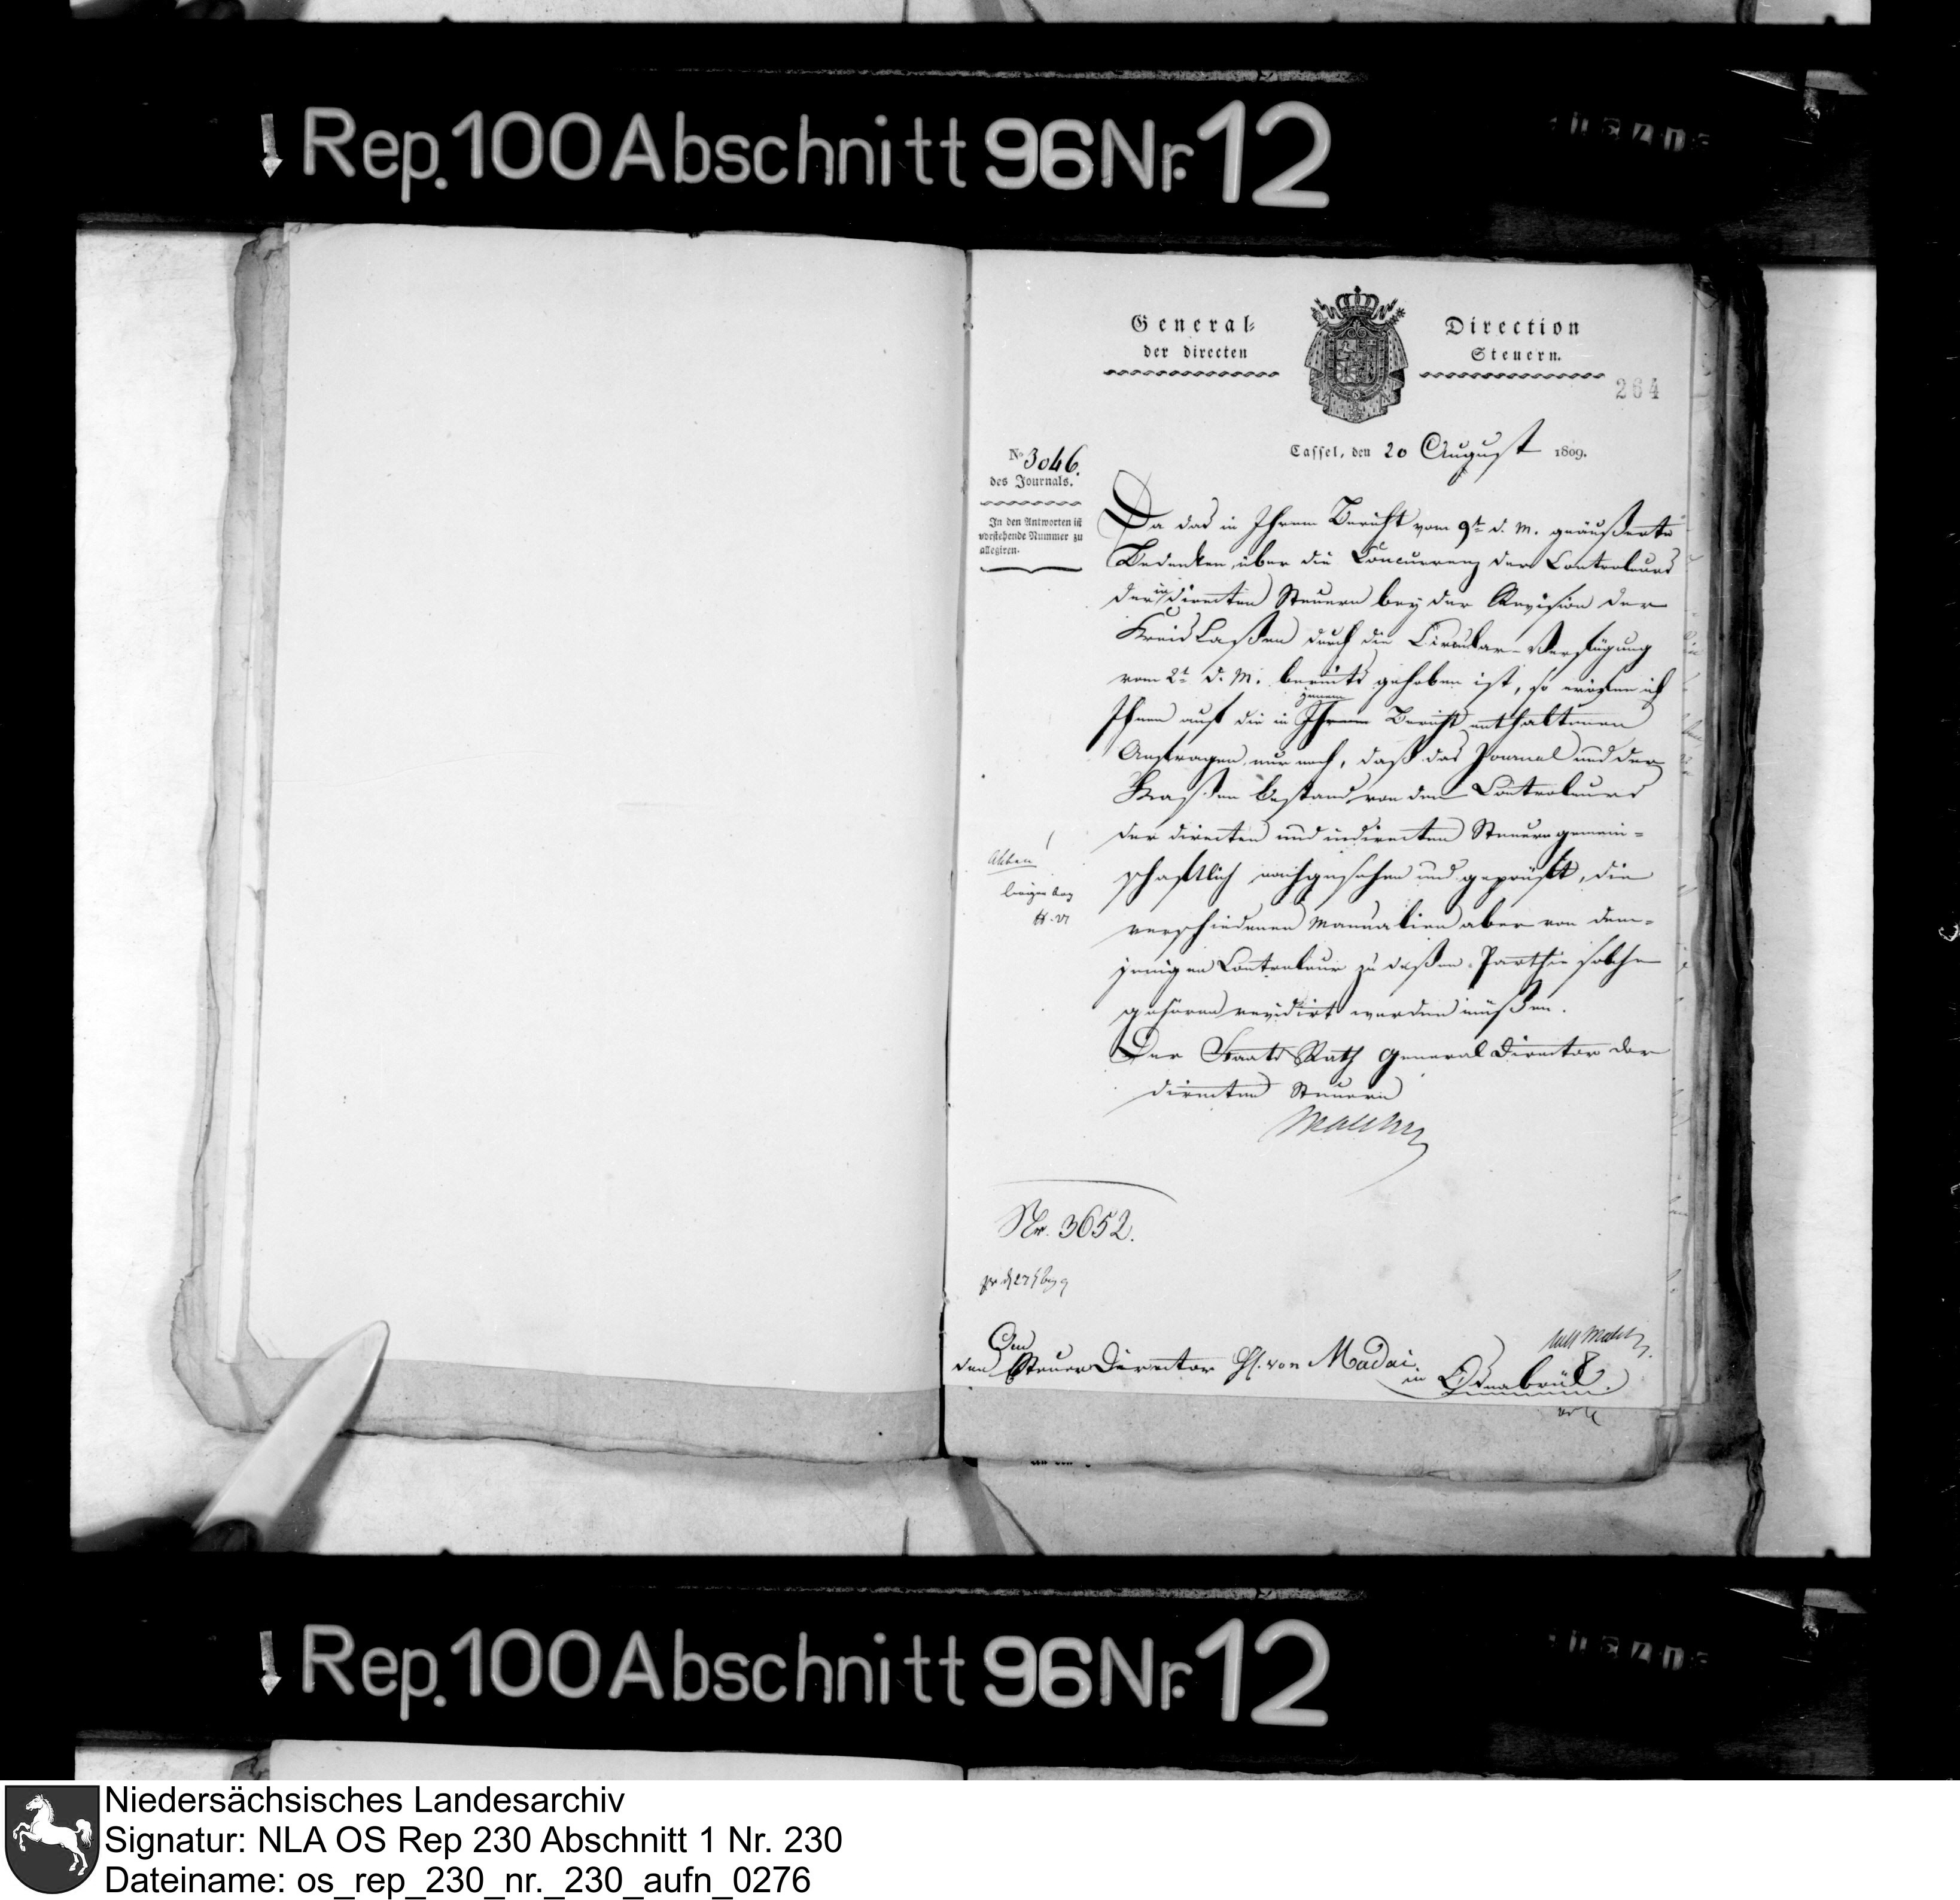 Rep. 100 Abschnitt 96 Nr. 12
General- Direction
der directen Steuern.
264
Cassel, den 20 August 1809.
No 3046.
des Journals.
In den Antworten ist
vorstehende Nummer zu
allegiren.
Da das in Ihrem Bericht vom 9t d. M. geäußerte
Bedenken, über die Concurrenz der Controleurs
der indirecten Steuern bey der Revision der
Kreis Caßen durch die Circular-Verfügung
vom 2t d. M. bereits gehoben ist, so eröffne ich
Ihnen auf die in jenem Bericht enthaltenen
Anfragen nur noch, daß das Journal und der
Kaßen Bestand von den Controleurs
der directen und indirecten Steuern gemein-
schaftlich nachgesehen und geprüft, die
verschiedenen Manualien aber von dem-
jenigen Controleur zu deßen Parthie solche
gehören revidirt werden müßen.
Der Staats Rath General Director der
directen Steuern
Malchus
Nr. 3652.
An
den Steuer Director H. von Madai
in Osnabrük.
Rep. 100 Abschnitt 96 Nr. 12
Niedersächsisches Landesarchiv
Signatur: NLA OS Rep 230 Abschnitt 1 Nr. 230
Dateiname: os_rep_230_nr._230_aufn_0276